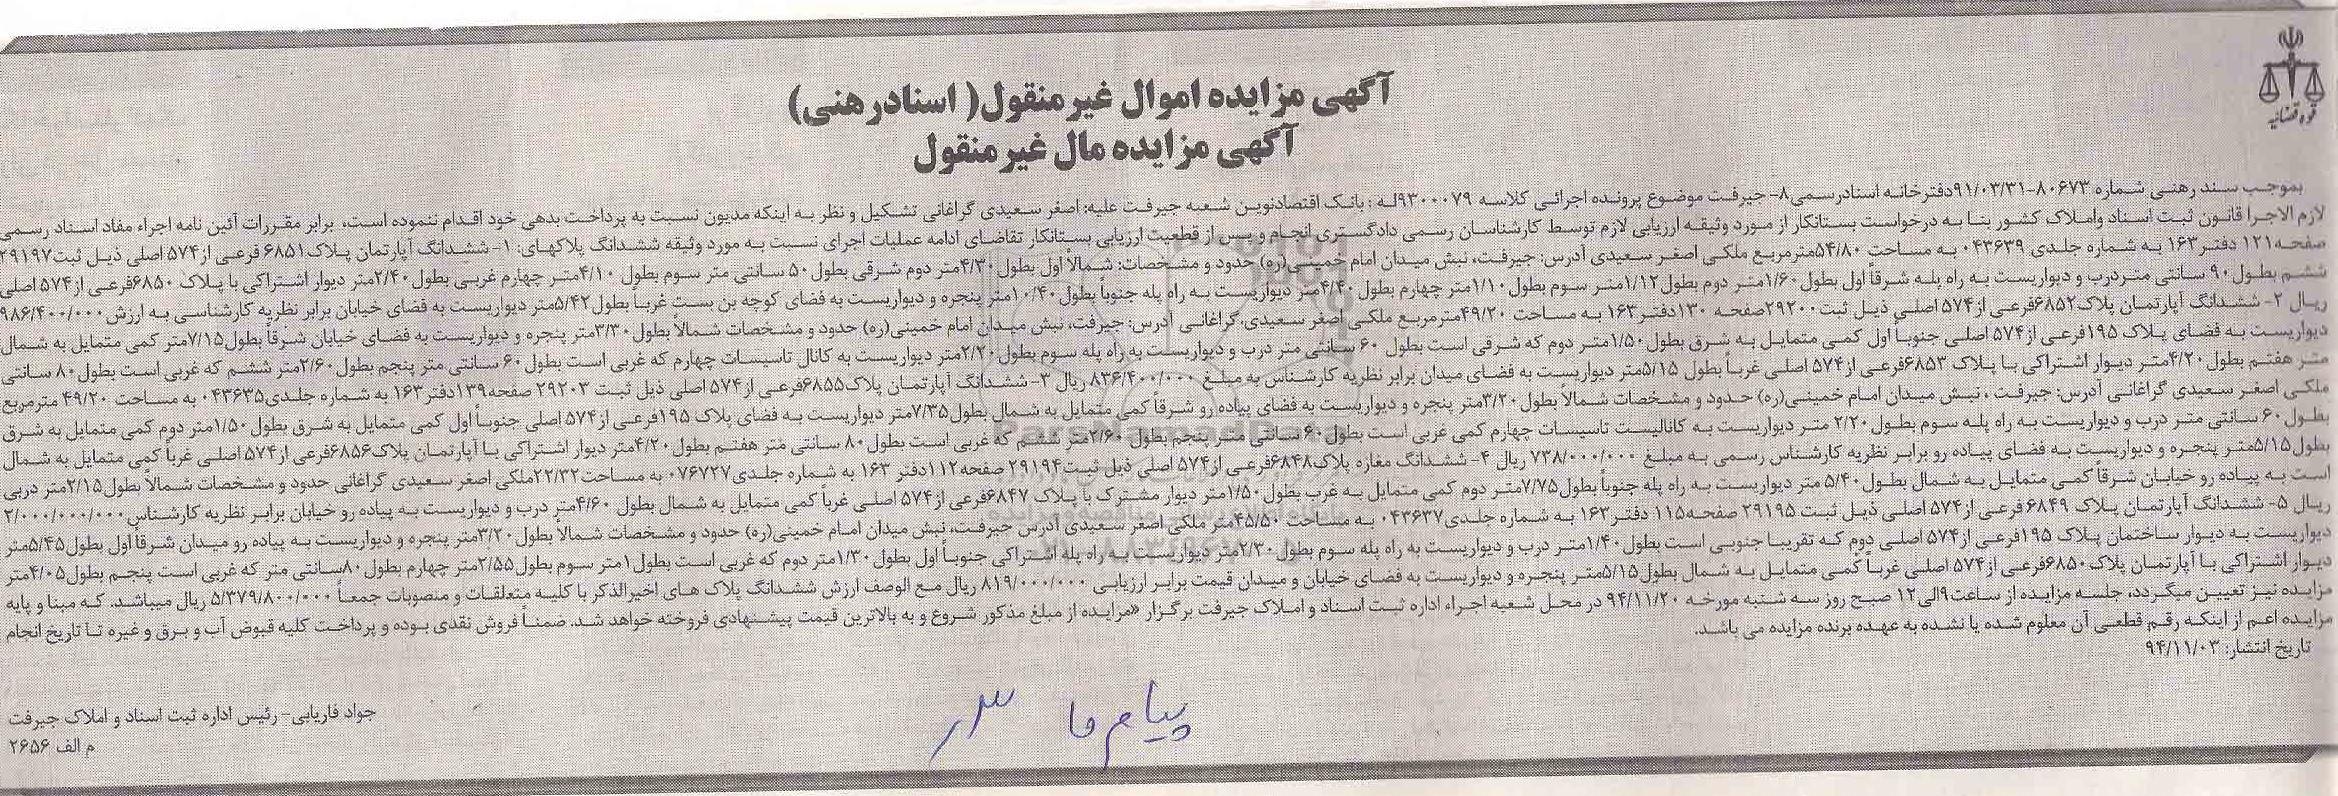 قوه قضائیه
آگهی مزایده اموال غیرمنقول( اسنادرهنی)
آگهی مزایده مال غیرمنقول
بموجب سند رهنی شماره ۸۰۶۷۳-۹۱/۰۳/۳۱دفترخانه اسنادرسمی۸- جیرفت موضوع پرونده اجرائی کلاسه ۹۳۰۰۰۷۹له : بانک اقتصادنوین شعبه جیرفت علیه: اصغر سعیدی گراغانی تشکیل و نظر به اینکه مدیون نسبت به پرداخت بدهی خود اقدام ننموده است، برابر مقررات آئین نامه اجراء مفاد اسناد رسمی
لازم الاجرا قانون ثبت اسناد واملاک کشور بنا به درخواست بستانکار از مورد وثیقه ارزیابی لازم توسط کارشناسان رسمی دادگستری انجام و پس از قطعیت ارزیابی بستانکار تقاضای ادامه عملیات اجرای نسبت به مورد وثیقه ششدانگ پلاکهای: ۱- ششدانگ آپارتمان پلاک۶۸۵۱ فرعی از۵۷۴ اصلی ذیل ثبت۲۹۱۹۷
صفحه۱۲۱ دفتر۱۶۳ به شماره جلدی ۰۴۳۶۳۹ به مساحت ۵۴/۸۰مترمربع ملکی اصغر سعیدی آدرس: جیرفت، نبش میدان امام خمینی(ره) حدود و مشخصات: شمالاً اول بطول۴/۳۰متر دوم شرقی بطول۵۰ سانتی متر سوم بطول ۴/۱۰متر چهارم غربی بطول۲/۴۰متر دیوار اشتراکی با پلاک ۶۸۵۰فرعی از۵۷۴ اصلی
ششم بطول۹۰ سانتی متردرب و دیواریست به راه پله شرقاً اول بطول۱/۶۰متر دوم بطول۱/۱۲متر سوم بطول۱/۱۰متر چهارم بطول۴/۴۰متر دیواریست به راه پله جنوباً بطول۱۰/۴۰متر پنجره و دیواریست به فضای کوچه بن بست غرباً بطول۵/۴۲متر دیواریست به فضای خیابان برابر نظریه کارشناسی به ارزش۹۸۶/۴۰۰/۰۰۰
ریال ۲- ششدانگ آپارتمان پلاک۶۸۵۲فرعی از۵۷۴ اصلی ذیل ثبت۲۹۲۰۰صفحه ۱۳۰دفتر۱۶۳ به مساحت ۴۹/۲۰مترمربع ملکی اصغر سعیدی گراغانی آدرس: جیرفت، نبش میدان امام خمینی(ره) حدود و مشخصات شمالاً بطول۳/۳۰متر پنجره و دیواریست به فضای خیابان شرقاً بطول۷/۱۵متر کمی متمایل به شمال
دیواریست به فضای پلاک ۱۹۵فرعی از۵۷۴ اصلی جنوباً اول کمی متمایل به شرق بطول۱/۵۰متر دوم که شرقی است بطول ۶۰ سانتی متر درب و دیواریست به راه پله سوم بطول۲/۲۰متر دیواریست به کانال تاسیسات چهارم که غربی است بطول ۶۰ سانتی متر پنجم بطول۲/۶۰متر ششم که غربی است بطول۸۰ سانتی
متر هفتم بطول۴/۲۰متر دیوار اشتراکی با پلاک ۶۸۵۳فرعی از۵۷۴ اصلی غرباً بطول ۵/۱۵متر دیواریست به فضای میدان برابر نظریه کارشناس به مبلغ ۸۳۶/۴۰۰/۰۰۰ ریال ۳- ششدانگ آپارتمان پلاک۶۸۵۵فرعی از۵۷۴ اصلی ذیل ثبت ۲۹۲۰۳ صفحه۱۳۹دفتر۱۶۳ به شماره جلدی۰۴۳۶۳۵ به مساحت ۴۹/۲۰ مترمربع
ملکی اصغر سعیدی گراغانی آدرس: جیرفت ، نبش میدان امام خمینی(ره) حدود و مشخصات شمالاً بطول۳/۲۰متر پنجره و دیواریست به فضای پیاده رو شرقاً کمی متمایل به شمال بطول۷/۳۵متر دیواریست به فضای پلاک ۱۹۵فرعی از۵۷۴ اصلی جنوباً اول کمی متمایل به شرق بطول۱/۵۰متر دوم کمی متمایل به شرق
بطول۶۰ سانتی متر درب و دیواریست به راه پله سوم بطول۲/۲۰ متر دیواریست به کانالیست تاسیسات چهارم کمی غربی است بطول۶۰ سانتی متر پنجم بطول ۲/۶۰متر ششم که غربی است بطول۸۰ سانتی متر هفتم بطول۴/۲۰متر دیوار اشتراکی با آپارتمان پلاک۶۸۵۶فرعی از۵۷۴ اصلی غرباً کمی متمایل به شمال
بطول۵/۱۵متر پنجره و دیواریست به فضای پیاده رو برابر نظریه کارشناس رسمی به مبلغ ۷۳۸/۰۰۰/۰۰۰ ریال ۴- ششدانگ مغازه پلاک۶۸۴۸فرعی از۵۷۴ اصلی ذیل ثبت۲۹۱۹۴ صفحه۱۱۲دفتر ۱۶۳ به شماره جلدی۰۷۶۷۲۷ به مساحت۲۲/۳۲ملکی اصغر سعیدی گراغانی حدود و مشخصات شمالاً بطول۲/۱۵متر دربی
است به پیاده رو خیابان شرقاً کمی متمایل به شمال بطول۵/۴۰ متر دیواریست به راه پله جنوباً بطول۷/۷۵متر دوم کمی متمایل به غرب بطول۱/۵۰متر دیوار مشترک با پلاک ۶۸۴۷فرعی از۵۷۴ اصلی غرباً کمی متمایل به شمال بطول ۴/۶۰متر درب و دیواریست به پیاده رو خیابان برابر نظریه کارشناس۲/۰۰۰/۰۰۰/۰۰۰
ریال ۵- ششدانگ آپارتمان پلاک ۶۸۴۹فرعی از۵۷۴ اصلی ذیل ثبت ۲۹۱۹۵ صفحه۱۱۵ دفتر۱۶۳ به شماره جلدی۰۴۳۶۳۷ به مساحت ۴۵/۵۰متر ملکی اصغر سعیدی آدرس جیرفت، نبش میدان امام خمینی(ره) حدود و مشخصات شمالاً بطول۳/۲۰متر پنجره و دیواریست به پیاده رو میدان شرقاً اول بطول۵/۴۵متر
دیواریست به دیوار ساختمان پلاک ۱۹۵فرعی از۵۷۴ اصلی دوم که تقریبا جنوبی است بطول۱/۴۰متر درب و دیواریست به راه پله سوم بطول۲/۳۰متر دیواریست به راه پله اشتراکی جنوباً اول بطول۱/۳۰متر دوم که غربی است بطول۱متر سوم بطول۲/۵۵متر چهارم بطول۸۰سانتی متر که غربی است پنجم بطول۴/۰۵متر
دیوار اشتراکی با آپارتمان پلاک۶۸۵۰فرعی از۵۷۴ اصلی غرباً کمی متمایل به شمال بطول۵/۱۵متر پنجره و دیواریست به فضای خیابان و میدان قیمت برابر ارزیابی ۸۱۹/۰۰۰/۰۰۰ ریال مع الوصف ارزش ششدانگ پلاک های اخیرالذکر با کلیه متعلقات و منصوبات جمعاً ۵/۳۷۹/۸۰۰/۰۰۰ ریال میباشد. که مبنا و پایه
مزایده نیز تعیین میگردد، جلسه مزایده از ساعت۹الی۱۲ صبح روز سه شنبه مورخه ۹۴/۱۱/۲۰ در محل شعبه اجراء اداره ثبت اسناد و املاک جیرفت برگزار «مزایده از مبلغ مذکور شروع و به بالاترین قیمت پیشنهادی فروخته خواهد شد. ضمناً فروش نقدی بوده و پرداخت کلیه قبوض آب و برق و غیره تا تاریخ انجام
مزایده اعم از اینکه رقم قطعی آن معلوم شده یا نشده به عهده برنده مزایده می باشد.
تاریخ انتشار: ۹۴/۱۱/۰۳
جواد فاریابی- رئیس اداره ثبت اسناد و املاک جیرفت
م الف ۲۶۵۶
پیام ما